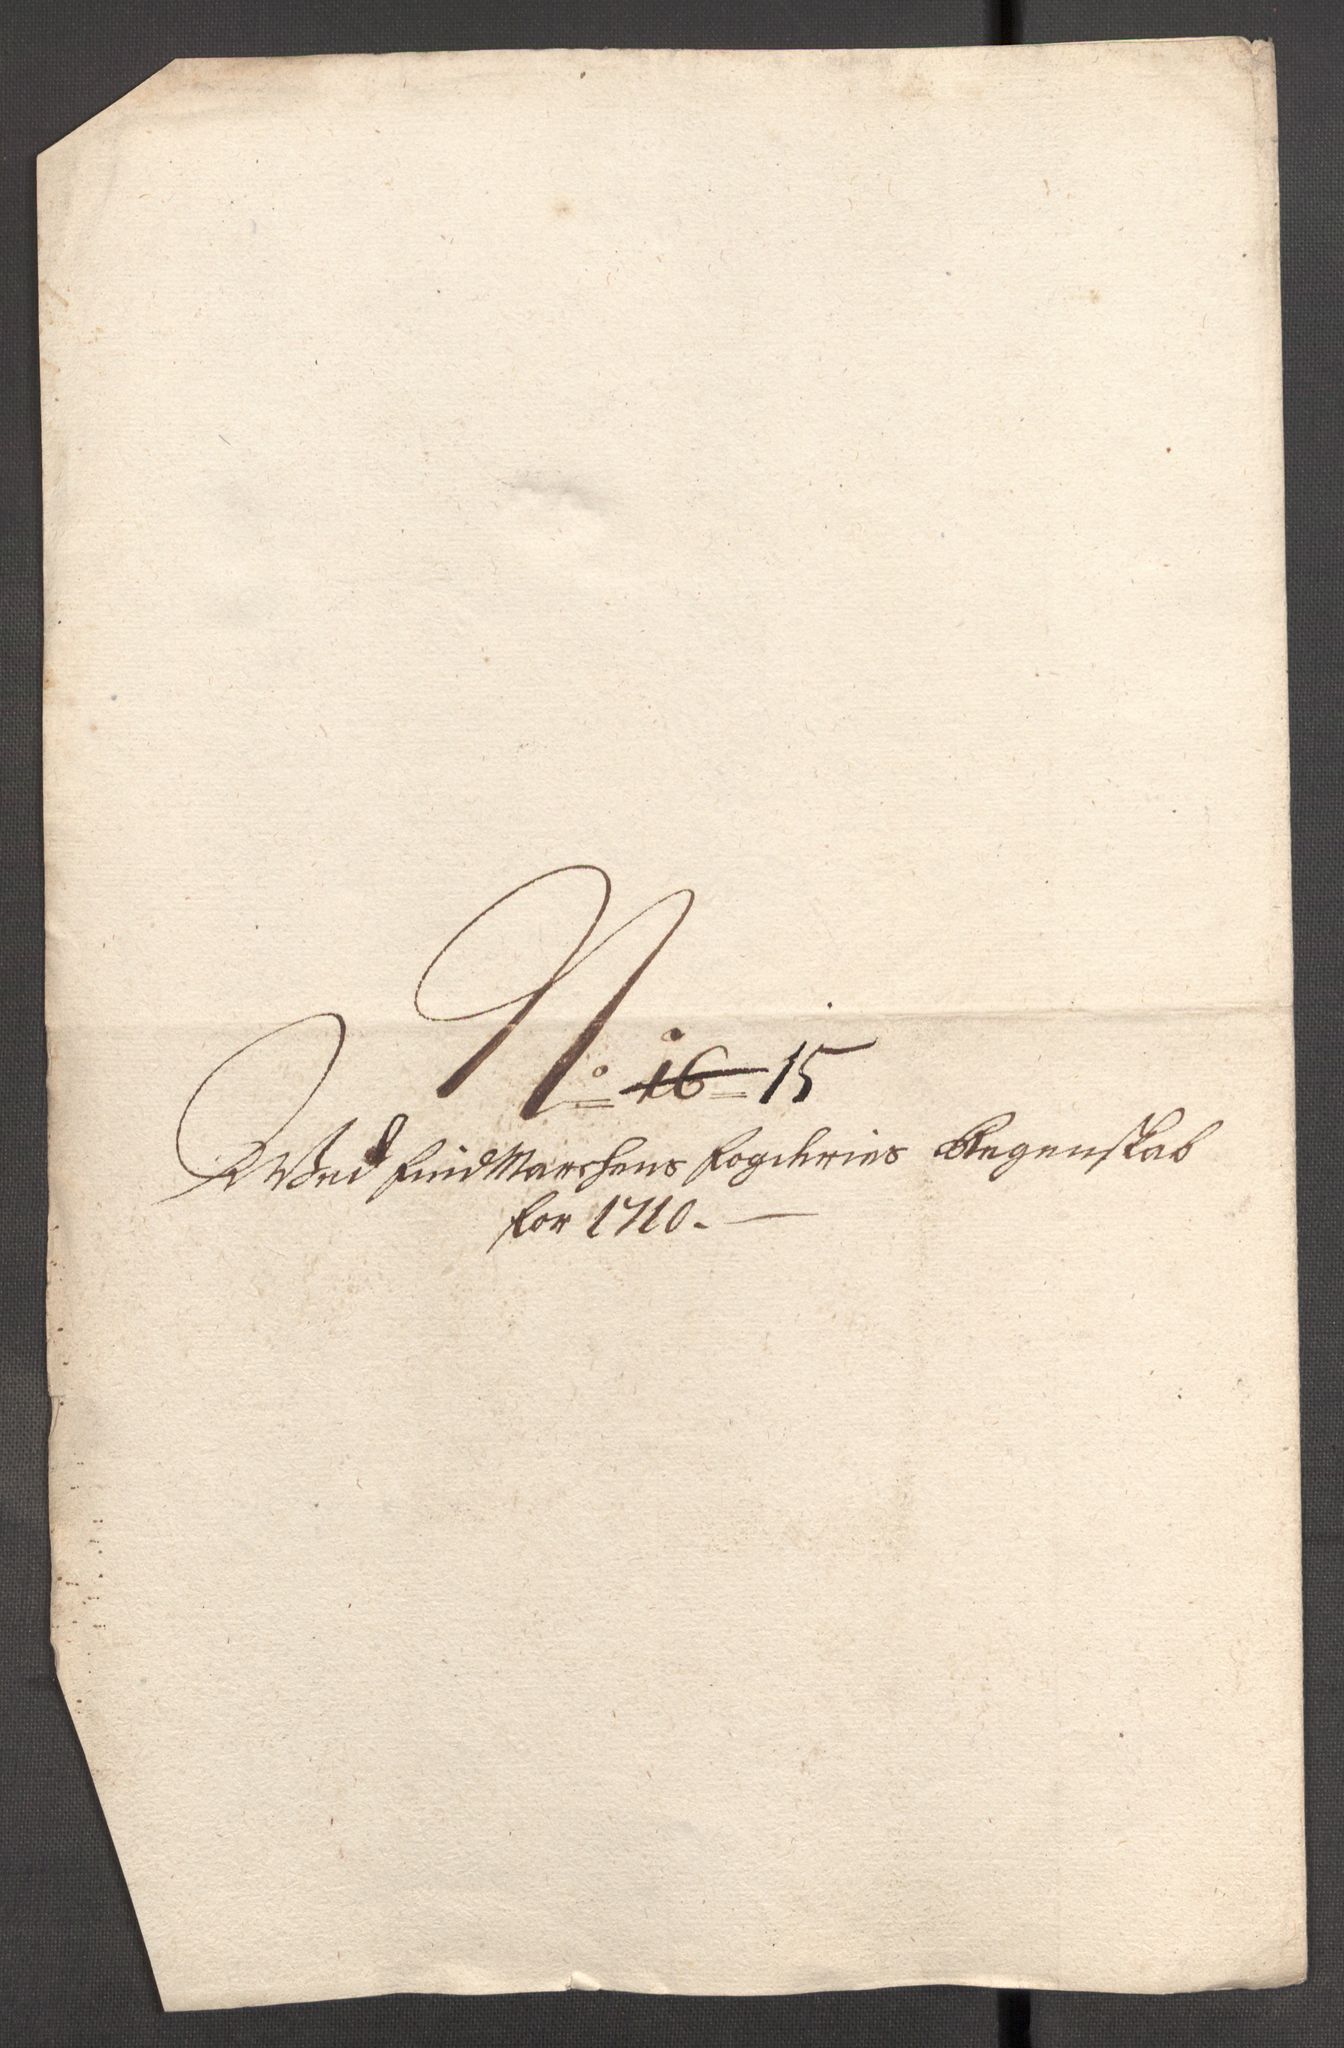 No. 16 15
Wed FindMarchens Fogderies Regenskab
for 1710.